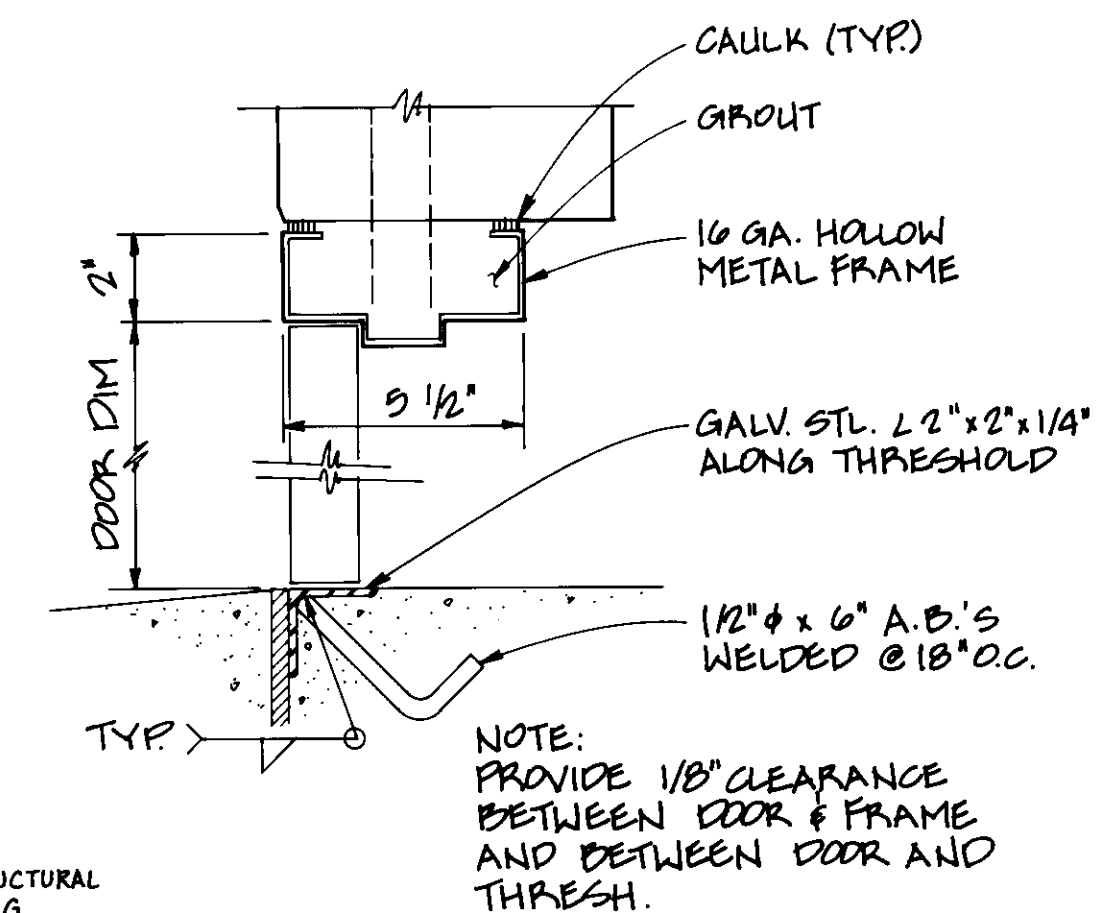 CAULK (TYP.)
GROUT
16 GA. HOLLOW
METAL FRAME
2"
DOOR DIM
5 1/2"
GALV. STL. L 2" x 2" x 1/4"
ALONG THRESHOLD
1/2" ϕ x 6" A.B.'S
WELDED @ 18" O.C.
TYP.
NOTE:
PROVIDE 1/8" CLEARANCE
BETWEEN DOOR & FRAME
AND BETWEEN DOOR AND
THRESH.
UCTURAL
G